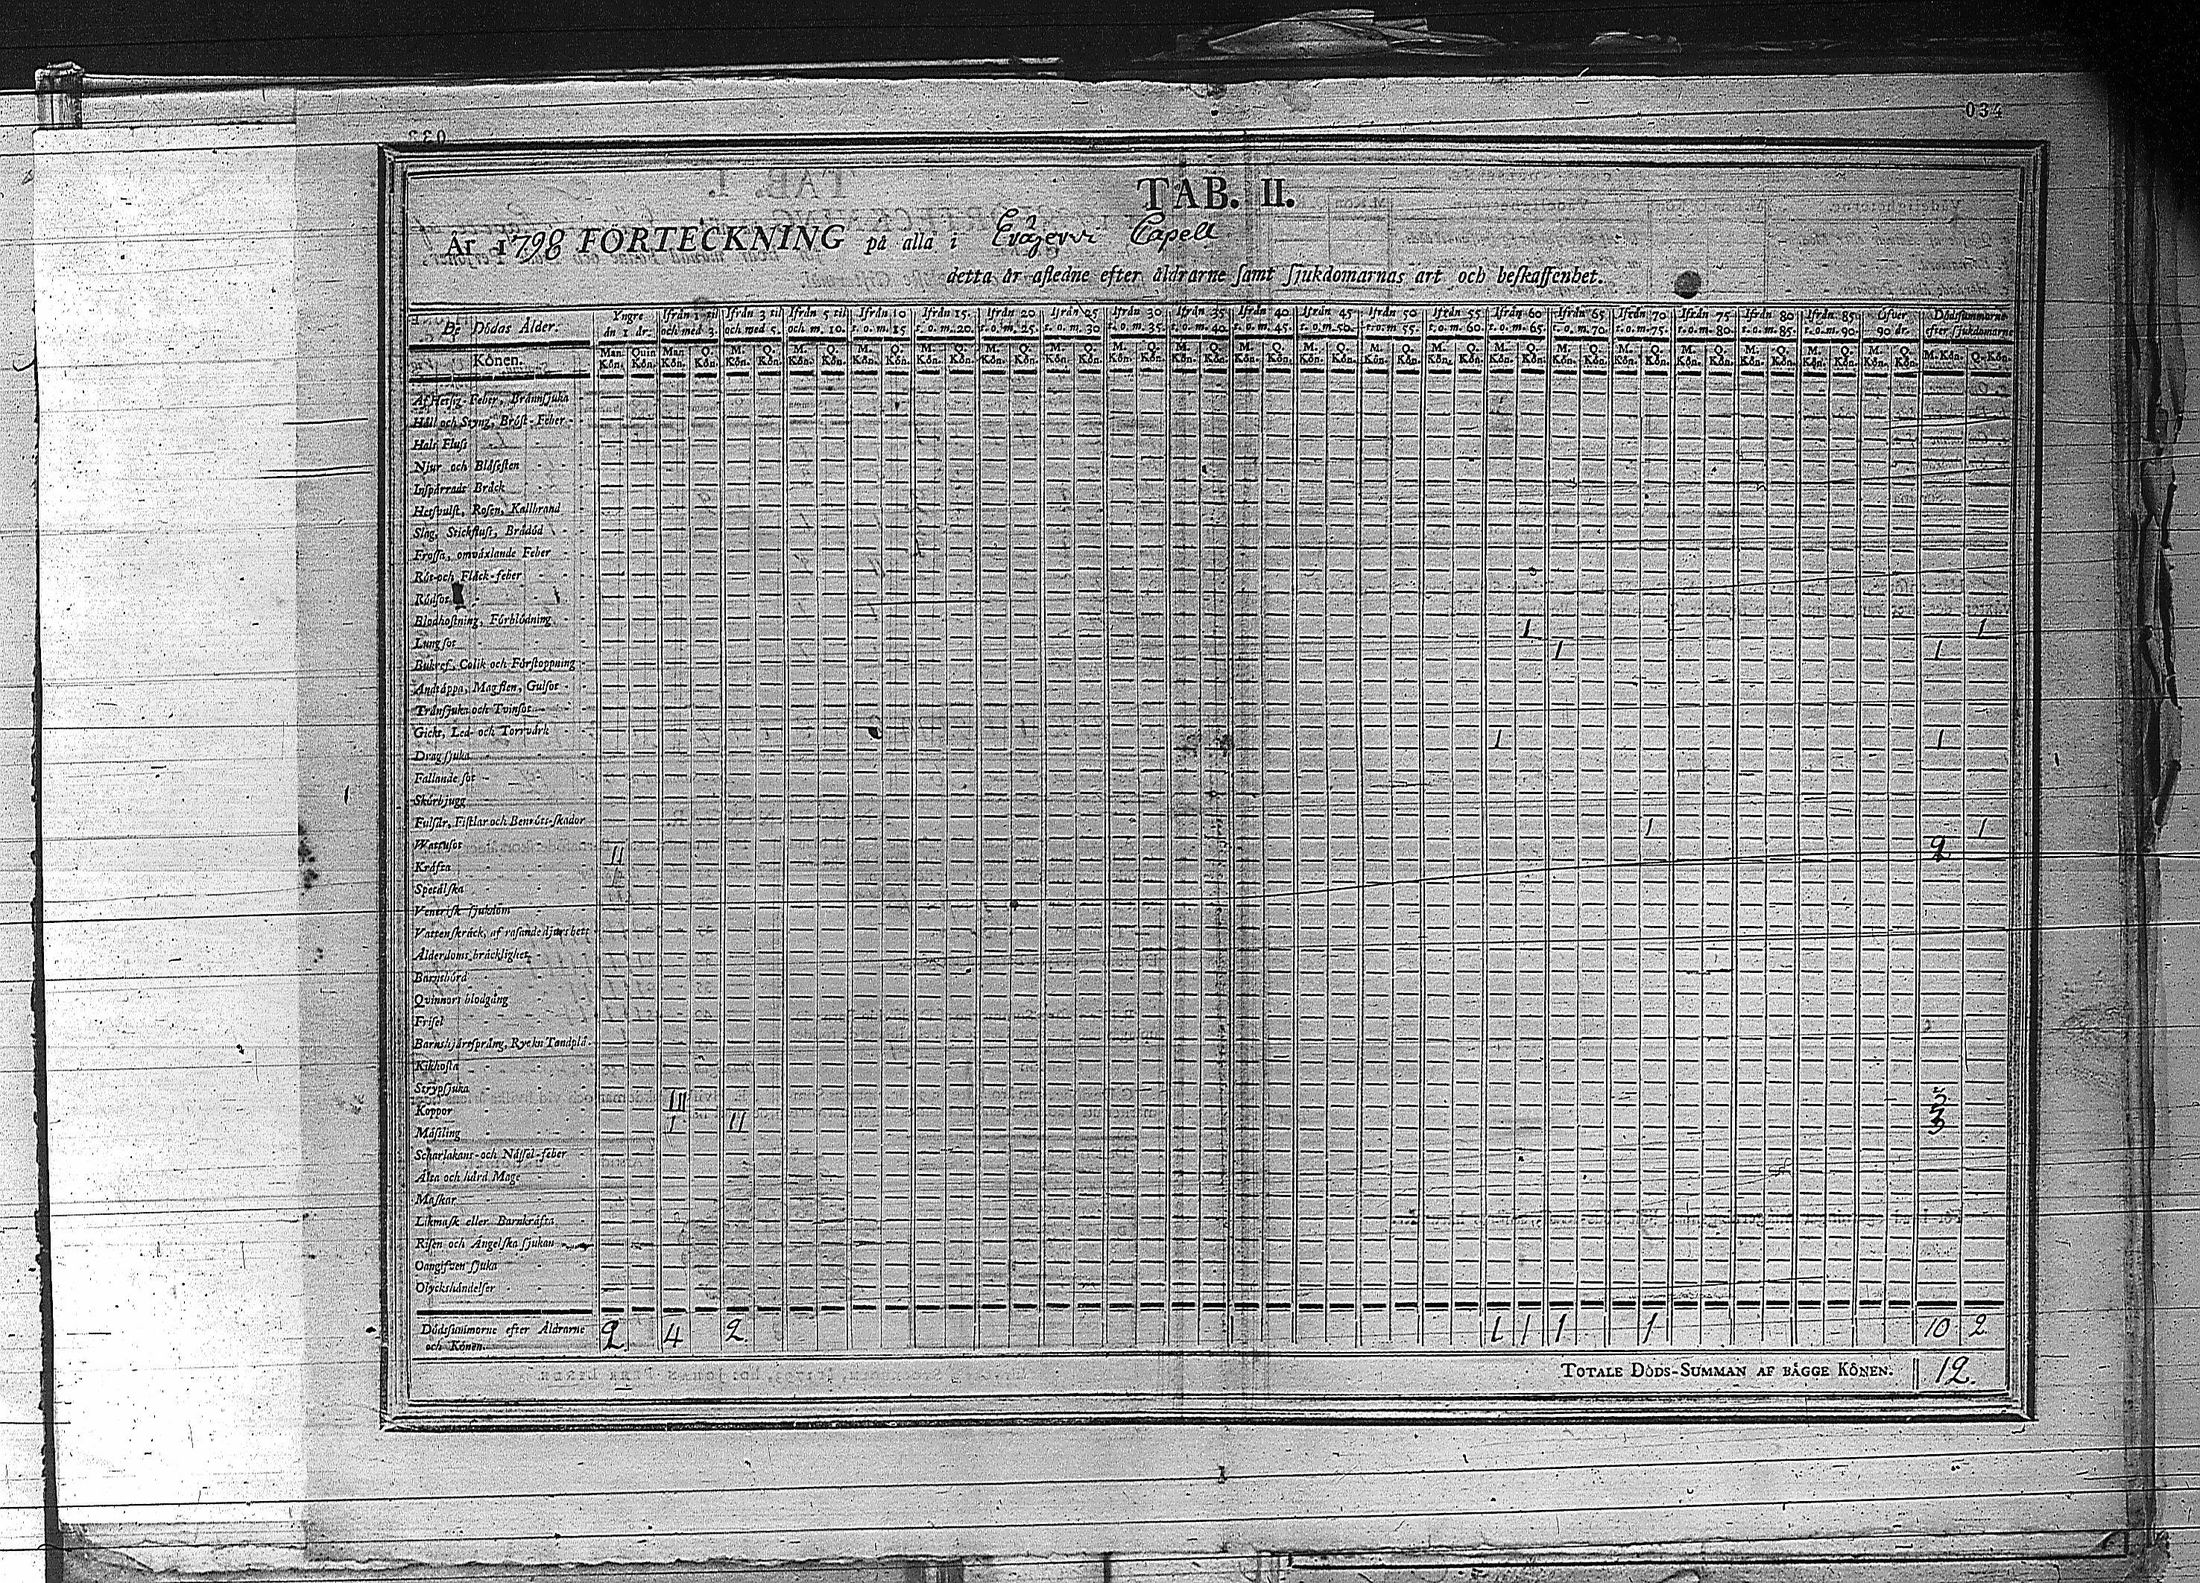 034
033
TAB. II.
År 1798 FÖRTECKNING på alla i Evåjervi Capell
detta år afledne efter åldrarne samt sjukdomarnas art och beskaffenhet.
De Dödas Ålder. Yngre än 1 år. Ifrån 1 til och med 3. Ifrån 3 til och med 5. Ifrån 5 til och m. 10. Ifrån 10 t. o. m. 15 Ifrån 15. t. o. m. 20. Ifrån 20 t. o. m. 25. Ifrån 25 t. o. m. 30 Ifrån 30 t. o. m. 35. Ifrån 35 t. o. m. 40. Ifrån 40 t. o. m. 45. Ifrån 45 t. o. m. 50. Ifrån 50 t. o. m. 55. Ifrån 55 t. o. m. 60. Ifrån 60 t. o. m. 65. Ifrån 65 t. o. m. 70. Ifrån 70 t. o. m. 75. Ifrån 75 t. o. m. 80. Ifrån 80 t. o. m. 85. Ifrån 85 t. o. m. 90. Öfver 90 år. Dödssummorne efter sjukdomarne
Könen. Man Kön. Quin Kön. Man Kön. Q. Kön. M. Kön. Q. Kön. M. Kön. Q. Kön. M. Kön. Q. Kön. M. Kön. Q. Kön. M. Kön. Q. Kön. M. Kön. Q. Kön. M. Kön. Q. Kön. M. Kön. Q. Kön. M. Kön. Q. Kön. M. Kön. Q. Kön. M. Kön. Q. Kön. M. Kön. Q. Kön. M. Kön. Q. Kön. M. Kön. Q. Kön. M. Kön. Q. Kön. M. Kön. Q. Kön. M. Kön. Q. Kön. M. Kön. Q. Kön. M. Kön. Q. Kön. M. Kön. Q. Kön.
Af Hetsig Feber, Brännsjuka
Håll och Styng, Bröst-Feber
Hals Fluss
Njur och Blåssten
Inspärradt Bråck
Hetsvulst, Rosen, Kallbrand
Slag, Stickfluss, Brådöd
Frossa, omväxlande Feber
Röt- och Fläck-feber
Rödsot
Blodhostning, Förblödning
Lungsot 1 1
Bukref, Colik och Förstoppning 1 1
Andtäppa, Magsten, Gulsot
Trånsjuka och Tvinsot
Gickt, Led- och Torrvärk
Dragsjuka 1 1
Fallande sot
Skörbjugg
Fulsår, Fistlar och Benröts-skador
Wattusot 1 1
Kräfta 11 2
Spetälska
Venerisk sjukdom
Vattenskräck, af rasande djurs bett
Ålderdoms bräcklighet
Barnsbörd
Qvinnors blodgång
Frisel
Barnshjärtsprång, Ryckn Tandplå.
Kikhosta
Strypsjuka
Koppor 111 3
Mässling 1 11 3
Scharlakans- och Nässel-feber
Älta och hård Mage
Maskar
Likmask eller Barnkräfta
Risen och Angelska sjukan
Oangifven sjuka
Olyckshändelser
Dödssummorne efter Åldrarne och Könen. 2 4 2 1 1 1 1 10 2
TOTALE DÖDS-SUMMAN AF BÄGGE KÖNEN. 12.